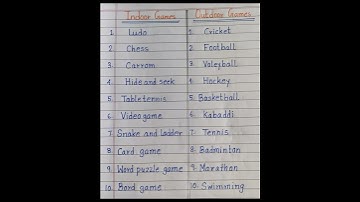 Indoor Games Outdoor Games
1. Ludo 1. Cricket
2. Chess 2. Football
3. Carrom 3. Valeyball
4. Hide and seek 4. Hockey
5. Table tennis 5. Basketball
6. Video game 6. Kabaddi
7. Snake and ladder 7. Tennis
8. Card game 8. Badmintan
9. Word puzzle game 9. Marathon
10. Bord game 10. Swimming